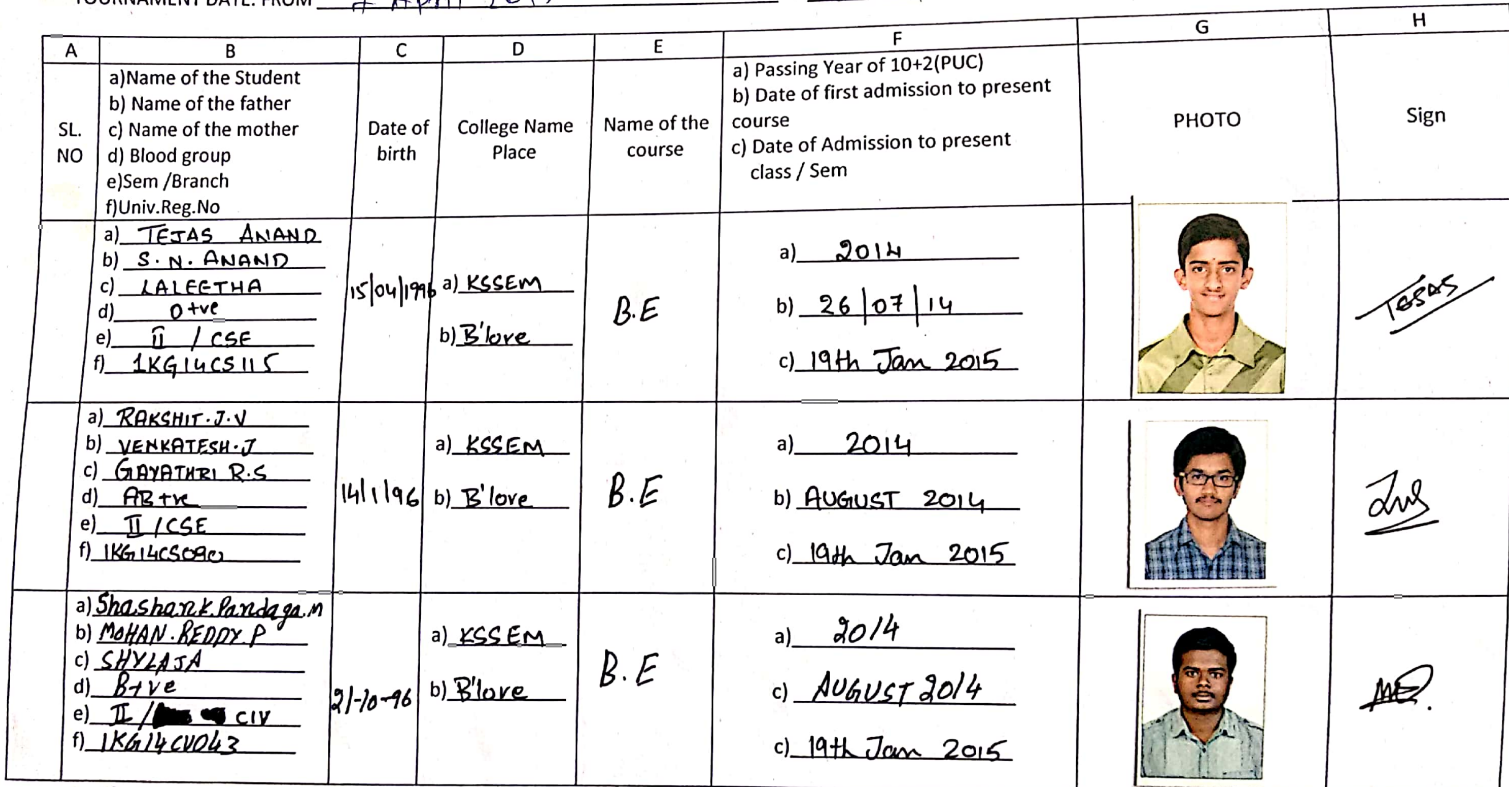 TOURNAMENT DATE: FROM
A B C D E F G H
SL.
NO
a)Name of the Student
b) Name of the father
c) Name of the mother
d) Blood group
e)Sem /Branch
f)Univ.Reg.No
Date of
birth
College Name
Place
Name of the
course
a) Passing Year of 10+2(PUC)
b) Date of first admission to present
course
c) Date of Admission to present
class / Sem
PHOTO
Sign
a) TEJAS ANAND
b) S. N. ANAND
c) LALEETHA
d) O+ve
e) II / CSE
f) 1KG14CS115
15/04/1996
a) KSSEM
b) B'lore
B.E
a) 2014
b) 26/07/14
c) 19th Jan 2015
TEJAS
a) RAKSHIT.J.V
b) VENKATESH.J
c) GAYATHRI R.S
d) AB+ve
e) II / CSE
f) 1KG14CS090
14/1/96
a) KSSEM
b) B'lore
B.E
a) 2014
b) AUGUST 2014
c) 19th Jan 2015
a) Shashank Pandaga.M
b) MOHAN.REDDY P
c) SHYLAJA
d) B+ve
e) II / CIV
f) 1KG14CV043
21-10-96
a) KSSEM
b) B'lore
B.E
a) 2014
c) AUGUST 2014
c) 19th Jan 2015